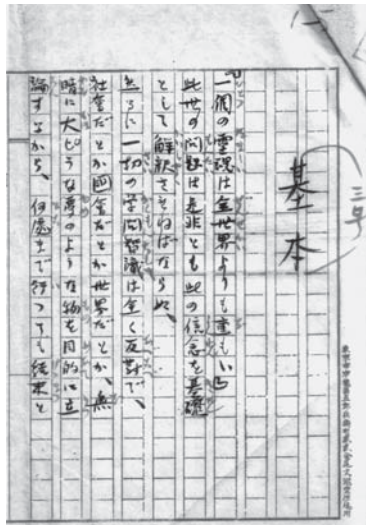 三号
基本
一個の霊魂は全世界よりも重もい。
此世の問題は是非とも此の信念を基礎
として解釈さをねばならぬ、
然るに一切の学問智識は全く反対で、
社会だとか国会だとか世界だとか、無
暗に大ビラな夢のような物を目的に立
論するから、何處まで行つても結果と